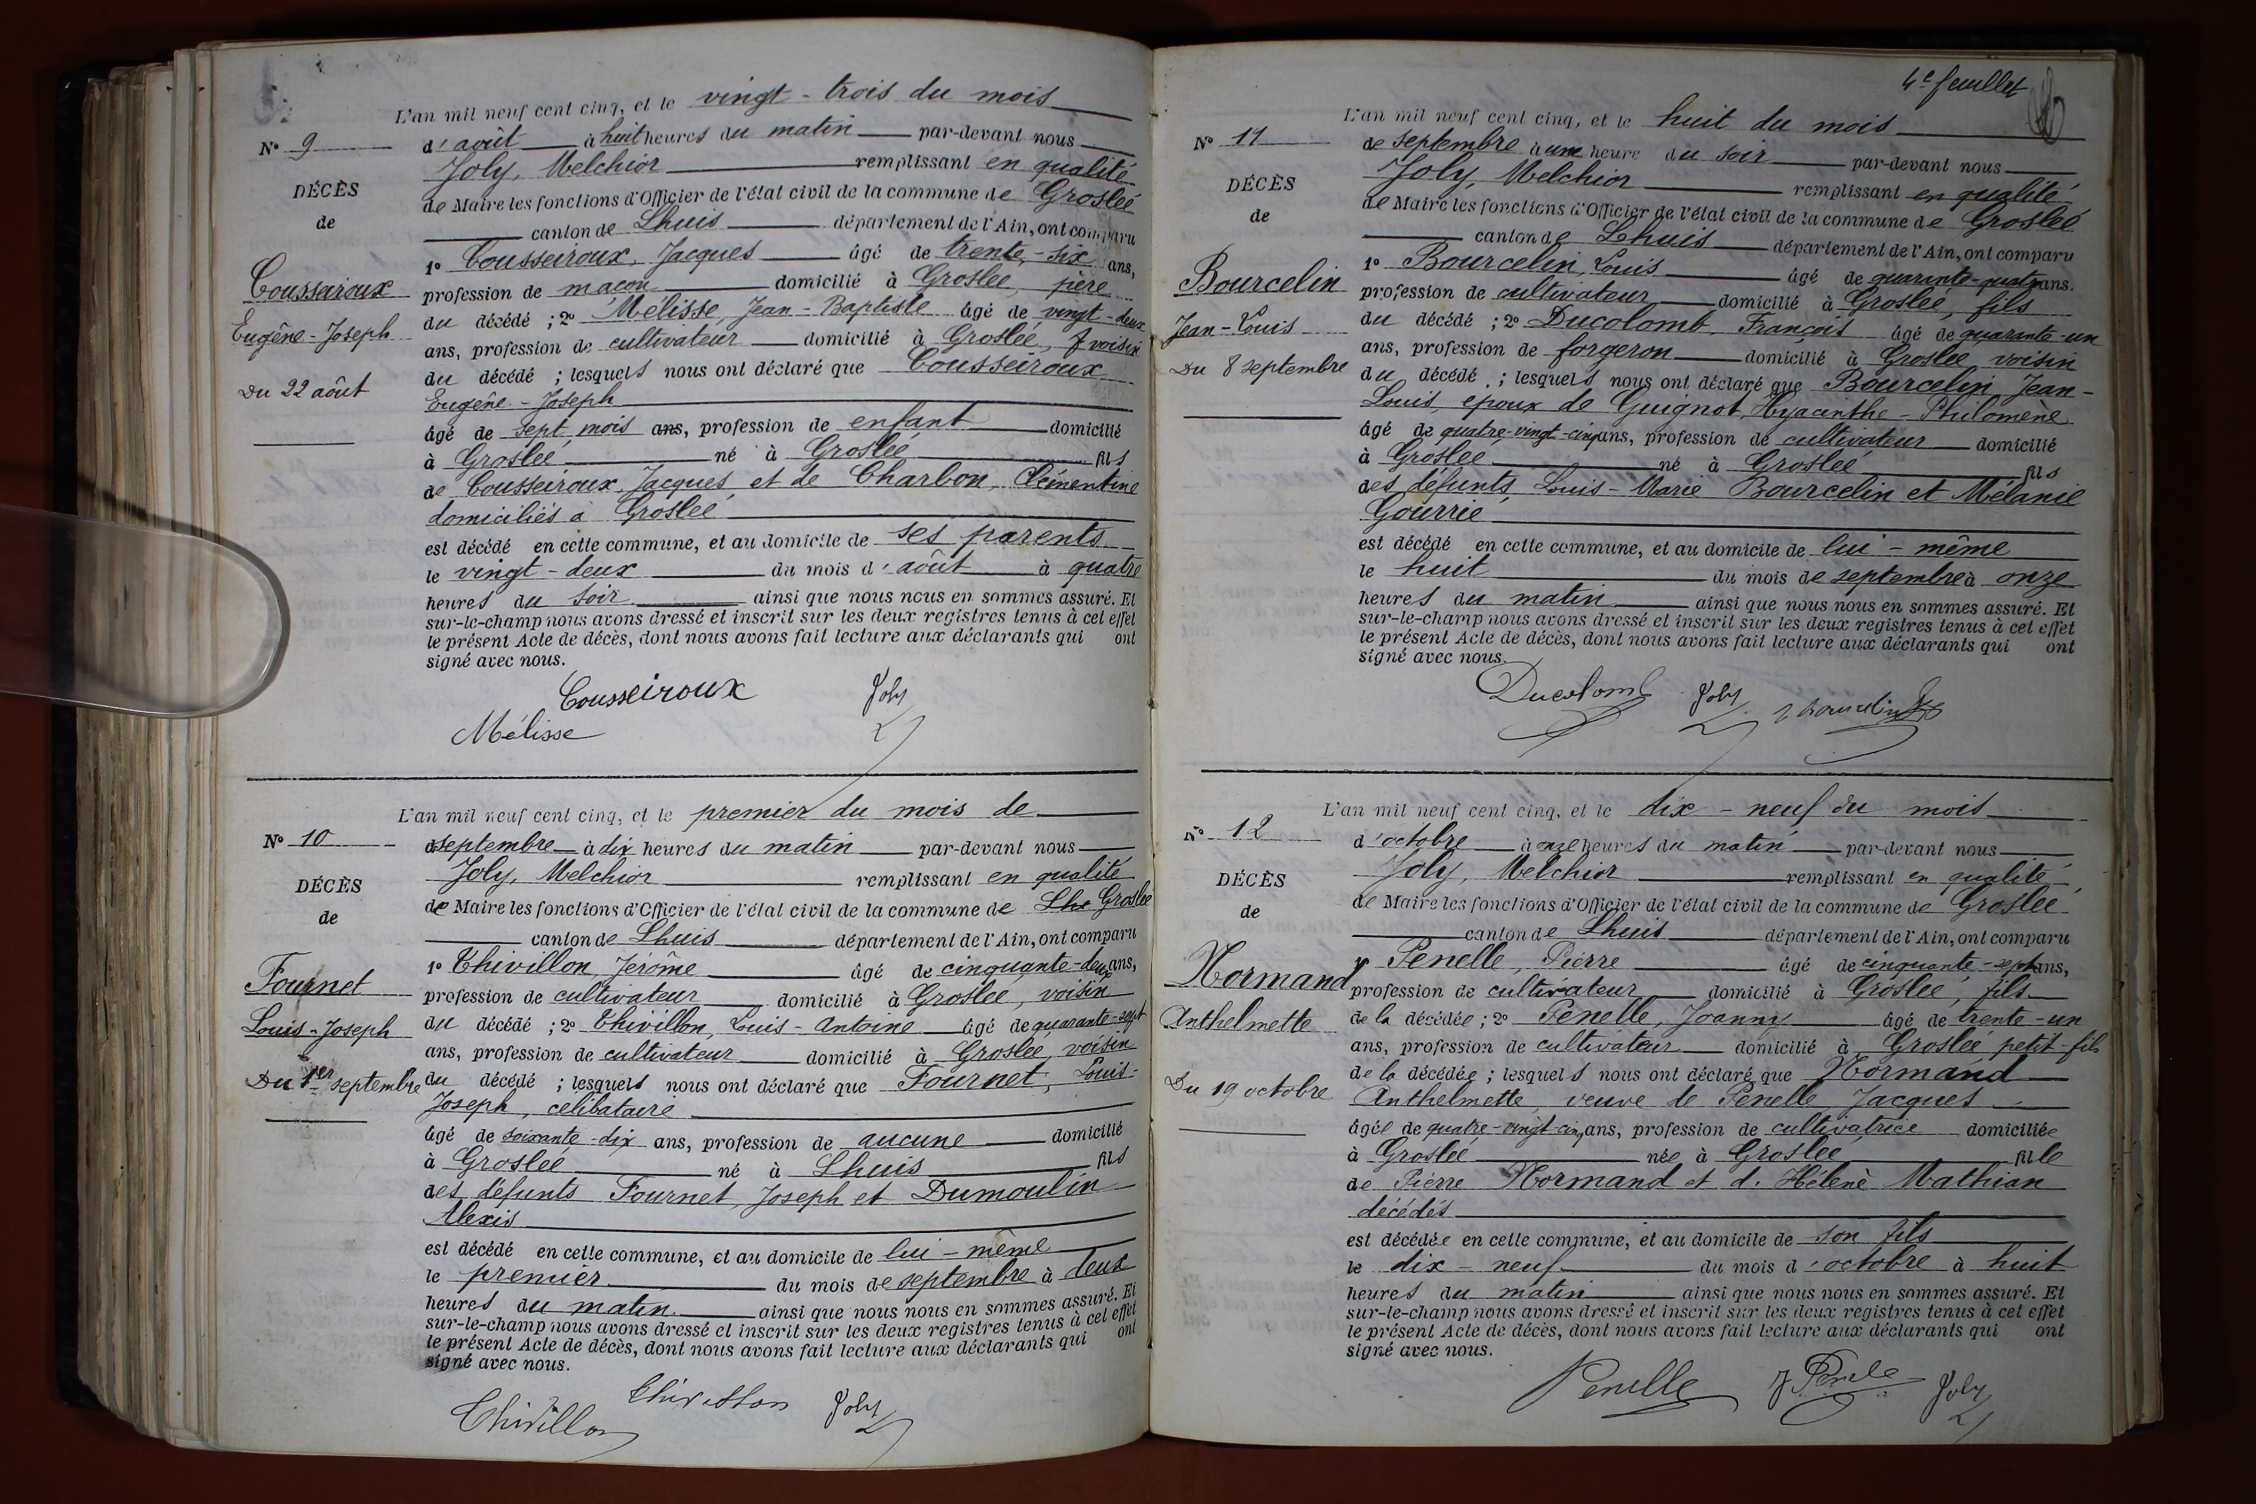 L'an mil neuf cent cinq, et le vingt-trois du mois
N° 9
d'août à huit heures du matin par-devant nous
Joly, Melchior remplissant en qualité
DÉCÈS
de Maire les fonctions d'Officier de l'état civil de la commune de Groslée
de
canton de Lhuis département de l'Ain, ont comparu
1° Cousseiroux, Jacques âgé de trente-six ans,
Cousseiroux
profession de maçon domicilié à Groslée, père
du décédé ; 2° Mélisse, Jean-Baptiste âgé de vingt-deux
Eugêne-Joseph
ans, profession de cultivateur domicilié à Groslée, voisin
du décédé ; lesquels nous ont déclaré que Cousseiroux
Du 22 août
Eugêne-Joseph
âgé de sept mois ans, profession de enfant domicilié
à Groslée né à Groslée fils
de Cousseiroux Jacques et de Charbon, Clémentine
domiciliés à Groslée
est décédé en cette commune, et au domicile de ses parents
le vingt-deux du mois d'août à quatre
heures du soir ainsi que nous nous en sommes assuré. Et
sur-le-champ nous avons dressé et inscrit sur les deux registres tenus à cet effet
le présent Acte de décès, dont nous avons fait lecture aux déclarants qui ont
signé avec nous.
Cousseiroux Joly
Mélisse
L'an mil neuf cent cinq, et le premier du mois de
N° 10
septembre à dix heures du matin par-devant nous
Joly, Melchior remplissant en qualité
DÉCÈS
de Maire les fonctions d'Officier de l'état civil de la commune de Lhu Groslée
de
canton de Lhuis département de l'Ain, ont comparu
1° Thivillon, Jérôme âgé de cinquante-deux ans,
Fournet
profession de cultivateur domicilié à Groslée, voisin
Louis-Joseph
du décédé ; 2° Thivillon, Louis-Antoine âgé de quarante-sept
ans, profession de cultivateur domicilié à Groslée, voisin
Du 1er septembre
du décédé ; lesquels nous ont déclaré que Fournet, Louis-
Joseph, célibataire
âgé de soixante-dix ans, profession de aucune domicilié
à Groslée né à Lhuis fils
des défunts Fournet, Joseph et Dumoulin
Alexis
est décédé en cette commune, et au domicile de lui-même
le premier du mois de septembre à deux
heures du matin ainsi que nous nous en sommes assuré. Et
sur-le-champ nous avons dressé et inscrit sur les deux registres tenus à cet effet
le présent Acte de décès, dont nous avons fait lecture aux déclarants qui ont
signé avec nous.
Thivillon Thivillon Joly
4e feuillet
L'an mil neuf cent cinq, et le huit du mois
N° 11
de septembre à une heure du soir par-devant nous
Joly, Melchior remplissant en qualité
DÉCÈS
de Maire les fonctions d'Officier de l'état civil de la commune de Groslée
de
canton de Lhuis département de l'Ain, ont comparu
1° Bourcelin, Louis âgé de quarante-quatre ans.
Bourcelin
profession de cultivateur domicilié à Groslée, fils
Jean-Louis
du décédé ; 2° Ducolomb François âgé de quarante-un
ans, profession de forgeron domicilié à Groslée voisin
Du 8 septembre
du décédé ; lesquels nous ont déclaré que Bourcelin Jean-
Louis, époux de Guignot, Hyacinthe-Philomène
âgé de quatre-vingt-cinq ans, profession de cultivateur domicilié
à Groslée né à Groslée fils
des défunts Louis-Marie Bourcelin et Mélanie
Gourrié
est décédé en cette commune, et au domicile de lui-même
le huit du mois de septembre à onze
heures du matin ainsi que nous nous en sommes assuré. Et
sur-le-champ nous avons dressé et inscrit sur les deux registres tenus à cet effet
le présent Acte de décès, dont nous avons fait lecture aux déclarants qui ont
signé avec nous.
Ducolomb Joly Bourcelin
L'an mil neuf cent cinq, et le dix-neuf du mois
N° 12
d'octobre à onze heures du matin par-devant nous
Joly, Melchior remplissant en qualité
DÉCÈS
de Maire les fonctions d'Officier de l'état civil de la commune de Groslée
de
canton de Lhuis département de l'Ain, ont comparu
Penelle, Pierre âgé de cinquante-sept ans,
Normand
profession de cultivateur domicilié à Groslée, fils
Anthelmette
de la décédée ; 2° Penelle, Joanny âgé de trente-un
ans, profession de cultivateur domicilié à Groslée petit-fils
Du 19 octobre
de la décédée ; lesquels nous ont déclaré que Normand
Anthelmette, veuve de Penelle Jacques
âgée de quatre-vingt-cinq ans, profession de cultivatrice domiciliée
à Groslée née à Groslée fille
de Pierre Normand et d. Hélène Mathian
décédés
est décédée en cette commune, et au domicile de son fils
le dix-neuf du mois d'octobre à huit
heures du matin ainsi que nous nous en sommes assuré. Et
sur-le-champ nous avons dressé et inscrit sur les deux registres tenus à cet effet
le présent Acte de décès, dont nous avons fait lecture aux déclarants qui ont
signé avec nous.
Penelle J. Penele Joly